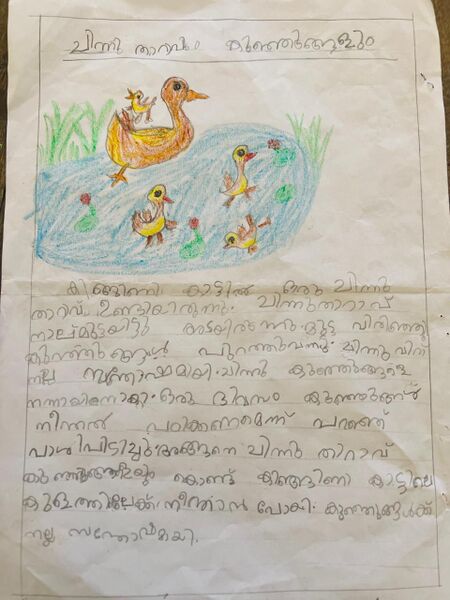 ചിന്നു താറാവും കുഞ്ഞുങ്ങളും
കിങ്ങിണി കാട്ടിൽ ഒരു ചിന്നു
താറാവ് ഉണ്ടായിരുന്നു. ചിന്നുതാറാവ്
നാല്മുട്ടയിട്ടു അടയിരുന്നു. മുട്ട വിരിഞ്ഞു
കുഞ്ഞുങ്ങൾ പുറത്തുവന്നു. ചിന്നുവിന്
നല്ല സന്തോഷമായി. ചിന്നു കുഞ്ഞുങ്ങളെ
നന്നായിനോക്കി. ഒരു ദിവസം കുഞ്ഞുങ്ങൾ
നീന്തൽ പഠിക്കണമെന്ന് പറഞ്ഞ്
വാശിപിടിച്ചു. അങ്ങനെ ചിന്നു താറാവ്
കുഞ്ഞുങ്ങളെയും കൊണ്ട് കിങ്ങിണി കാട്ടിലെ
കുളത്തിലേക്ക് നീന്താൻ പോയി. കുഞ്ഞുങ്ങൾക്ക്
നല്ല സന്തോഷമായി.